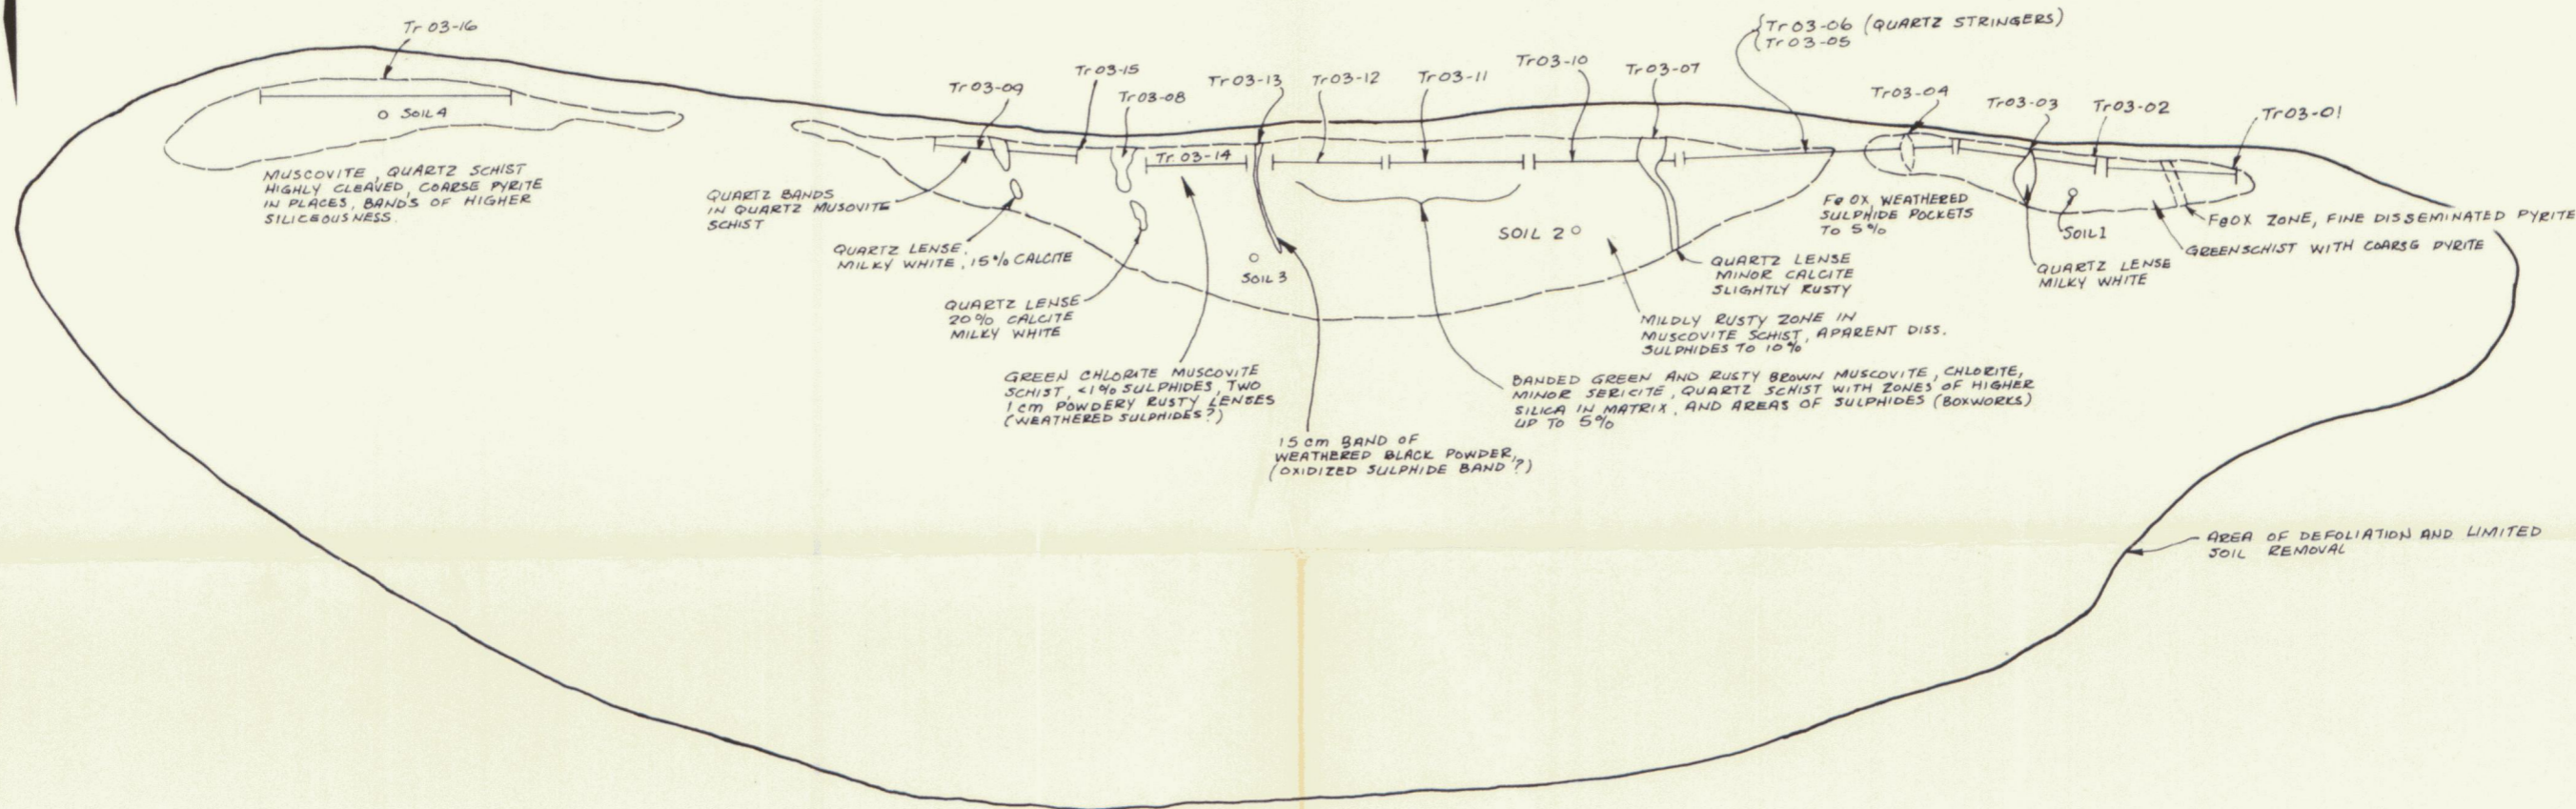 Tr 03-16
SOIL 4
MUSCOVITE, QUARTZ SCHIST
HIGHLY CLEAVED, COARSE PYRITE
IN PLACES, BANDS OF HIGHER
SILICEOUSNESS.
Tr 03-09
Tr 03-15
Tr 03-08
Tr 03-14
Tr 03-13
Tr 03-12
Tr 03-11
Tr 03-10
Tr 03-07
Tr 03-06 (QUARTZ STRINGERS)
Tr 03-05
Tr 03-04
Tr 03-03
Tr 03-02
Tr 03-01
QUARTZ BANDS
IN QUARTZ MUSOVITE
SCHIST
QUARTZ LENSE,
MILKY WHITE, 15% CALCITE
QUARTZ LENSE
20% CALCITE
MILKY WHITE
GREEN CHLORITE MUSCOVITE
SCHIST, <1% SULPHIDES, TWO
1 cm POWDERY RUSTY LENSES
(WEATHERED SULPHIDES?)
SOIL 3
15 cm BAND OF
WEATHERED BLACK POWDER,
(OXIDIZED SULPHIDE BAND?)
SOIL 2
BANDED GREEN AND RUSTY BROWN MUSCOVITE, CHLORITE,
MINOR SERICITE, QUARTZ SCHIST WITH ZONES OF HIGHER
SILICA IN MATRIX, AND AREAS OF SULPHIDES (BOXWORKS)
UP TO 5%
MILDLY RUSTY ZONE IN
MUSCOVITE SCHIST, APARENT DISS.
SULPHIDES TO 10%
QUARTZ LENSE
MINOR CALCITE
SLIGHTLY RUSTY
FeOX, WEATHERED
SULPHIDE POCKETS
TO 5%
SOIL 1
QUARTZ LENSE
MILKY WHITE
FeOX ZONE, FINE DISSEMINATED PYRITE
GREENSCHIST WITH COARSE PYRITE
AREA OF DEFOLIATION AND LIMITED
SOIL REMOVAL